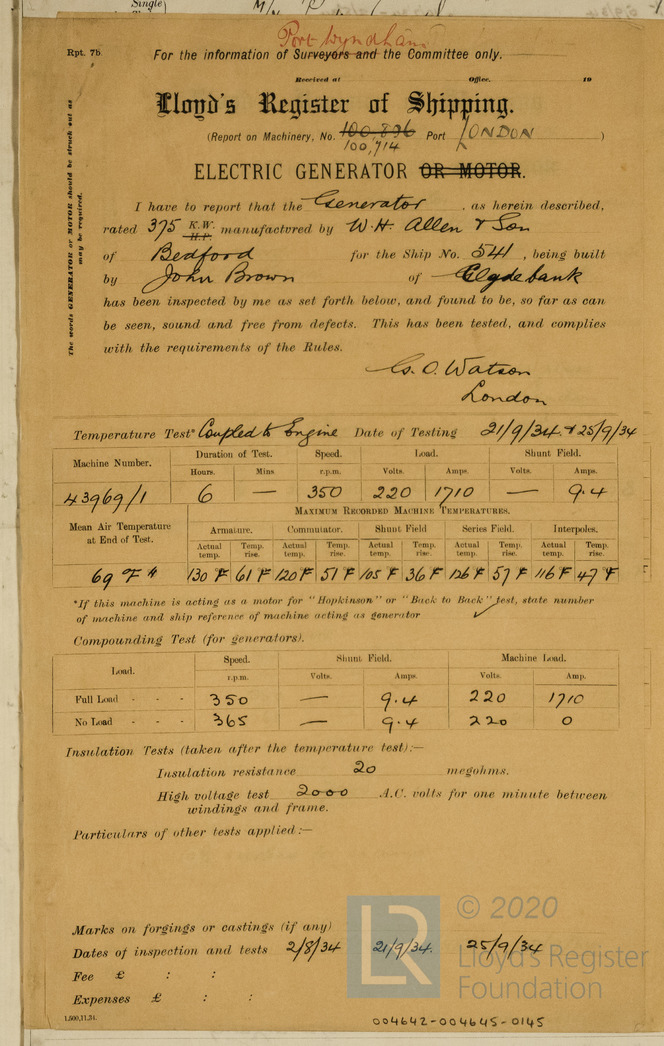 Single
Port Wyndham
Rpt. 7b.
For the information of Surveyors and the Committee only.
Received at Office. 19
Lloyd's Register of Shipping.
(Report on Machinery, No. 100,836 Port LONDON )
100,714
ELECTRIC GENERATOR OR MOTOR.
The words GENERATOR or MOTOR should be struck out as
may be required.
I have to report that the Generator , as herein described,
rated 375 K.W. H.P. manufactured by W. H. Allen & Son
of Bedford for the Ship No. 541 , being built
by John Brown of Clydebank
has been inspected by me as set forth below, and found to be, so far as can
be seen, sound and free from defects. This has been tested, and complies
with the requirements of the Rules.
G. O. Watson
London
Temperature Test* Coupled to Engine Date of Testing 21/9/34 & 25/9/34
Machine Number. Duration of Test. Speed. Load. Shunt Field.
Hours. Mins. r.p.m. Volts. Amps. Volts. Amps.
43969/1 6 — 350 220 1710 — 9.4
Mean Air Temperature at End of Test. MAXIMUM RECORDED MACHINE TEMPERATURES.
Armature. Commutator. Shunt Field Series Field. Interpoles.
Actual temp. Temp. rise. Actual temp. Temp. rise. Actual temp. Temp. rise. Actual temp. Temp. rise. Actual temp. Temp. rise.
69 °F 130 F 61 F 120 F 51 F 105 F 36 F 126 F 57 F 116 F 47 F
*If this machine is acting as a motor for "Hopkinson" or "Back to Back" test, state number
of machine and ship reference of machine acting as generator
Compounding Test (for generators).
Load. Speed. Shunt Field. Machine Load.
r.p.m. Volts. Amps. Volts. Amp.
Full Load - - - 350 — 9.4 220 1710
No Load - - - 365 — 9.4 220 0
Insulation Tests (taken after the temperature test):—
Insulation resistance 20 megohms.
High voltage test 2000 A.C. volts for one minute between
windings and frame.
Particulars of other tests applied:—
Marks on forgings or castings (if any)
Dates of inspection and tests 2/8/34 21/9/34. 25/9/34
Fee £ : :
Expenses £ : :
1,500,11,31.
LR
© 2020
Lloyd's Register
Foundation
004642-004645-0145